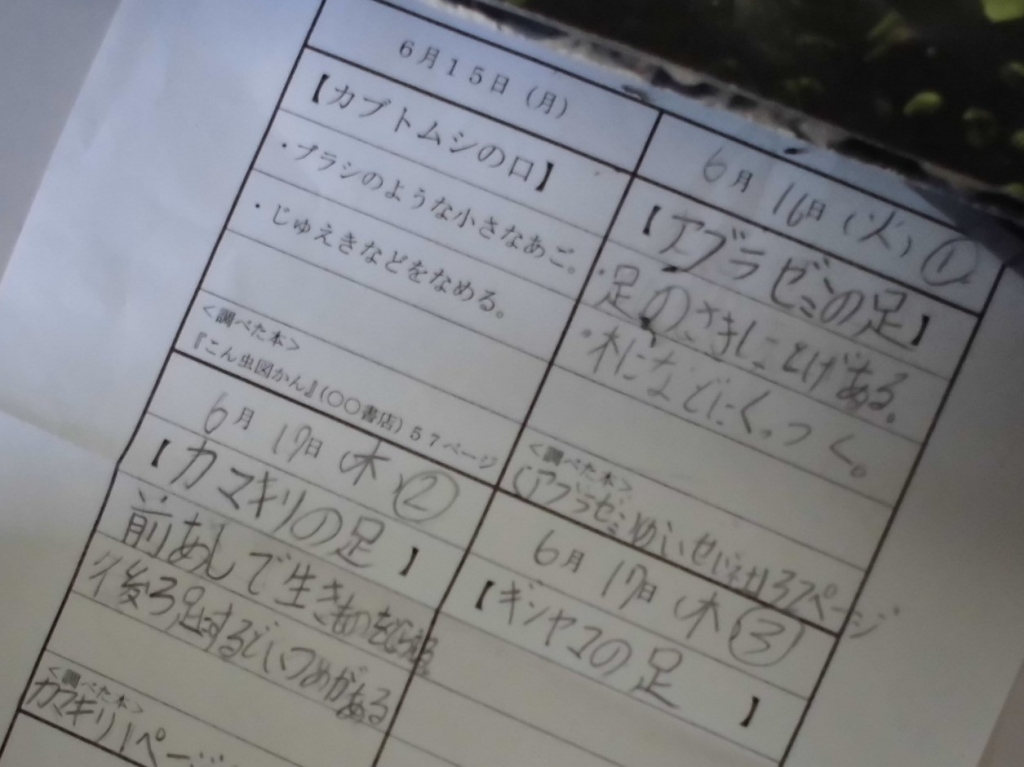 6月15日（月）
【カブトムシの口】
・ブラシのような小さなあご。
・じゅえきなどをなめる。
＜調べた本＞
『こん虫図かん』（〇〇書店）57ページ
6月 16日（火）①
【アブラゼミの足】
・足のさきしことげがある。
・木になどにくっつく。
＜調べた本＞
アブラゼミ 37ページ
6月 17日 木 ②
【カマキリの足】
前あしで生きものを
後ろ足はするどいつめがある
＜調べた本＞
カマキリ 1ページ
6月 17日 木 ③
【ギンヤマの足】